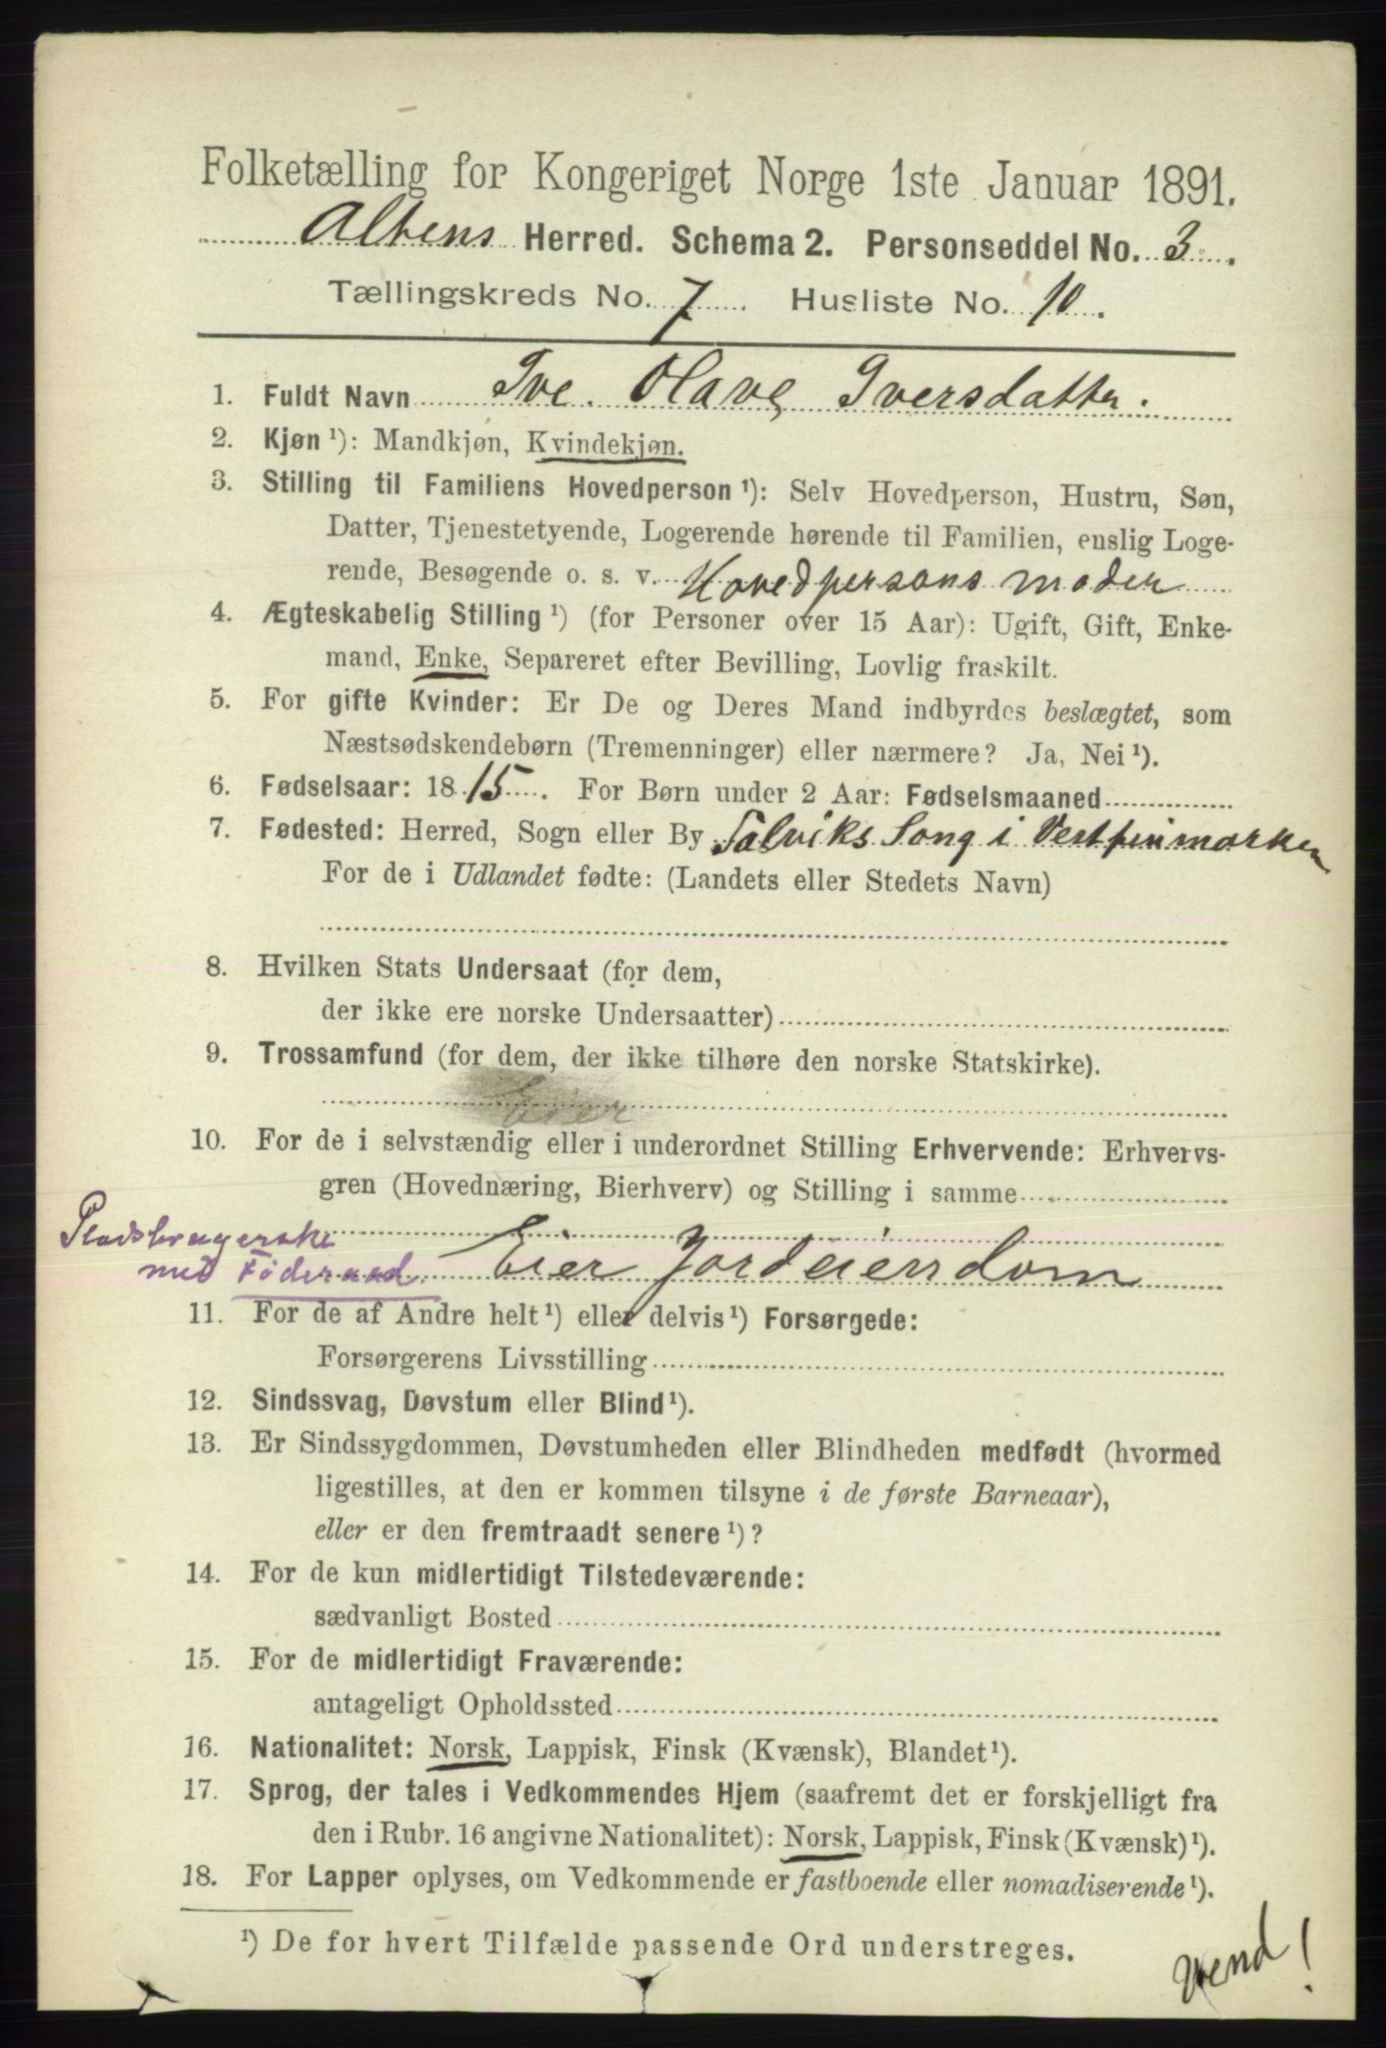 Folketælling for Kongeriget Norge 1ste Januar 1891.
Altens Herred. Schema 2. Personseddel No. 3.
Tællingskreds No. 7 Husliste No. 10.
1. Fuldt Navn Ive. Olava Iversdatter.
2. Kjøn ¹): Mandkjøn, Kvindekjøn.
3. Stilling til Familiens Hovedperson ¹): Selv Hovedperson, Hustru, Søn,
Datter, Tjenestetyende, Logerende hørende til Familien, enslig Loge-
rende, Besøgende o. s. v. Hovedpersons moder
4. Ægteskabelig Stilling ¹) (for Personer over 15 Aar): Ugift, Gift, Enke-
mand, Enke, Separeret efter Bevilling, Lovlig fraskilt.
5. For gifte Kvinder: Er De og Deres Mand indbyrdes beslægtet, som
Næstsødskendebørn (Tremenninger) eller nærmere? Ja, Nei ¹).
6. Fødselsaar: 1815. For Børn under 2 Aar: Fødselsmaaned
7. Fødested: Herred, Sogn eller By Talviks Sogn i Vestfinmarken
For de i Udlandet fødte: (Landets eller Stedets Navn)
8. Hvilken Stats Undersaat (for dem,
der ikke ere norske Undersaatter)
9. Trossamfund (for dem, der ikke tilhøre den norske Statskirke).
Eier
10. For de i selvstændig eller i underordnet Stilling Erhvervende: Erhvervs-
gren (Hovednæring, Bierhverv) og Stilling i samme
Pladsbrugerske
med Föderaad. Eier Jordeiendom
11. For de af Andre helt ¹) eller delvis ¹) Forsørgede:
Forsørgerens Livsstilling
12. Sindssvag, Døvstum eller Blind ¹).
13. Er Sindssygdommen, Døvstumheden eller Blindheden medfødt (hvormed
ligestilles, at den er kommen tilsyne i de første Barneaar),
eller er den fremtraadt senere ¹)?
14. For de kun midlertidigt Tilstedeværende:
sædvanligt Bosted
15. For de midlertidigt Fraværende:
antageligt Opholdssted
16. Nationalitet: Norsk, Lappisk, Finsk (Kvænsk), Blandet ¹).
17. Sprog, der tales i Vedkommendes Hjem (saafremt det er forskjelligt fra
den i Rubr. 16 angivne Nationalitet): Norsk, Lappisk, Finsk (Kvænsk) ¹).
18. For Lapper oplyses, om Vedkommende er fastboende eller nomadiserende ¹).
¹) De for hvert Tilfælde passende Ord understreges.
Vend!